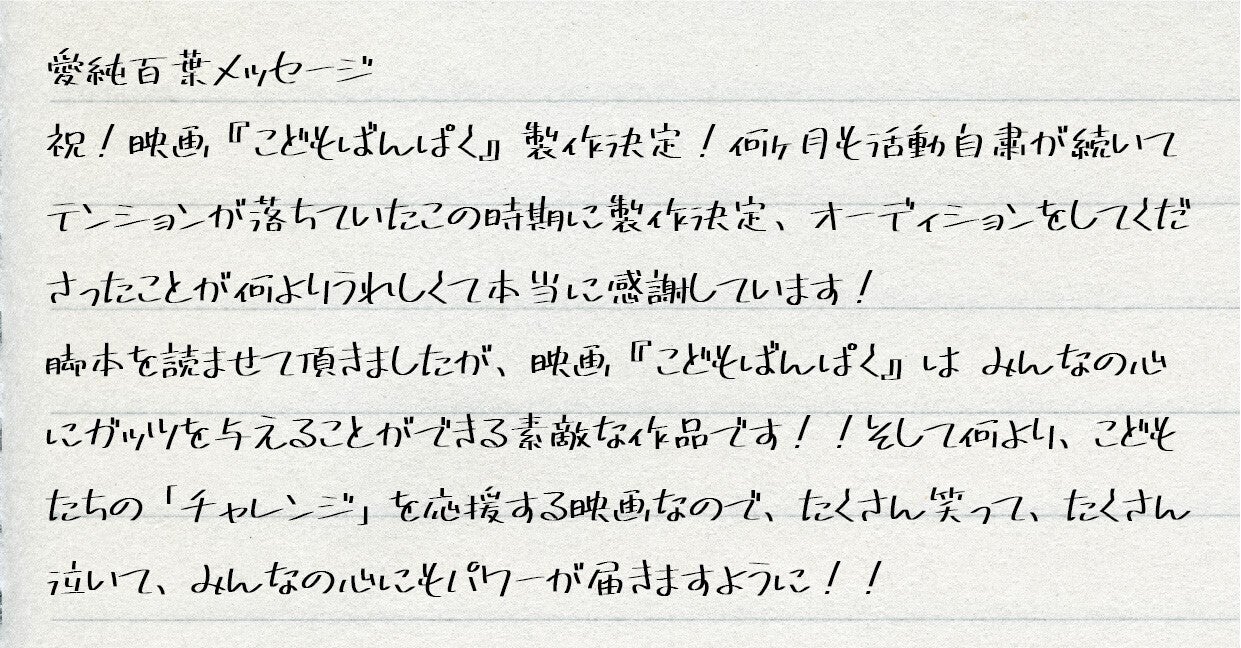 愛純百葉メッセージ
祝！映画『こどもばんぱく』製作決定！何ヶ月も活動自粛が続いて
テンションが落ちていたこの時期に製作決定、オーディションをしてくだ
さったことが何よりうれしくて本当に感謝しています！
脚本を読ませて頂きましたが、映画『こどもばんぱく』は みんなの心
にガッツを与えることができる素敵な作品です！！そして何より、こども
たちの「チャレンジ」を応援する映画なので、たくさん笑って、たくさん
泣いて、みんなの心にもパワーが届きますように！！